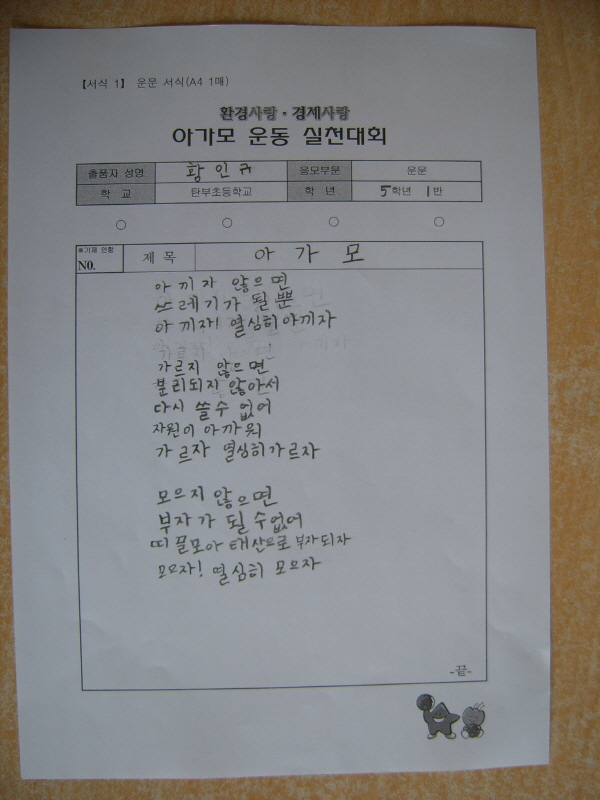 【서식 1】 운문 서식(A4 1매)
환경사랑·경제사랑
아가모 운동 실천대회
출품자 성명 황인규 응모부문 운문
학교 탄부초등학교 학년 5학년 1반
※기재 안함
NO. 제목 아가모
아끼자 않으면
쓰레기가 될뿐
아끼자! 열심히아끼자
가르지 않으면
분리되지 않아서
다시 쓸수 없어
자원이 아까워
가르자 열심히가르자
모으지 않으면
부자가 될 수없어
띠끌모아 태산으로 부자되자
모으자! 열심히 모으자
-끝-